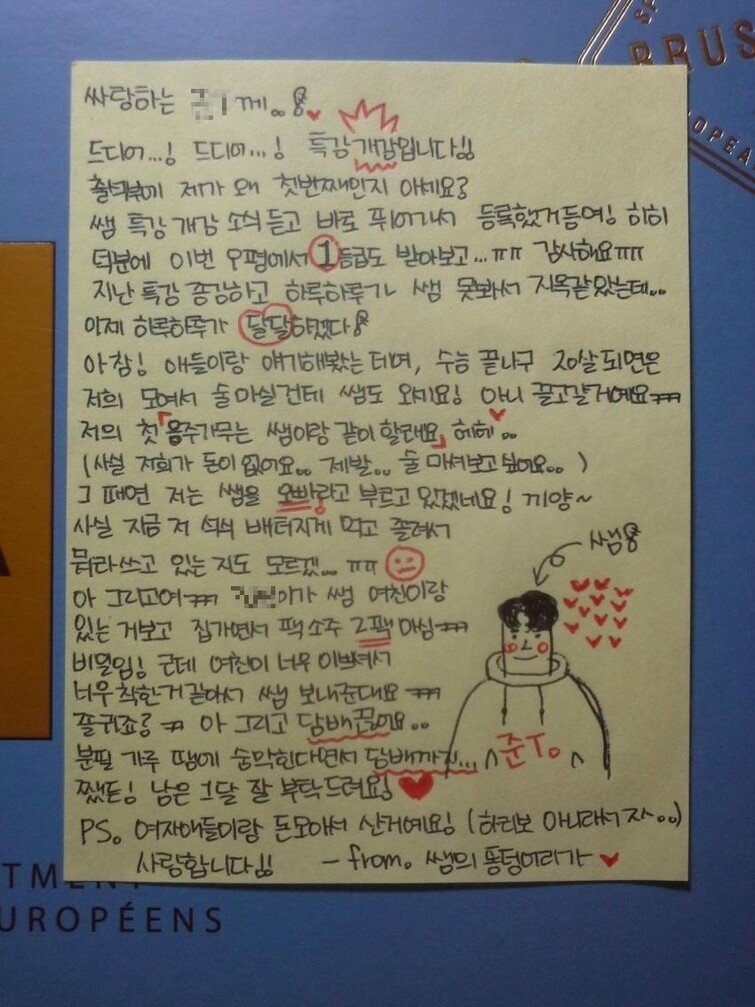 싸랑하는 께..
드디어...! 드디어...! 특강개강입니다!!
출석부에 제가 왜 첫번째인지 아세요?
쌤 특강 개강 소식 듣고 바로 뛰어가서 등록했거든여! 히히
덕분에 이번 9평에서 1등급도 받아보고...ㅠㅠ 감사해요ㅠㅠ
지난 특강 종강하고 하루하루가 쌤 못봐서 지옥같았는데..
이제 하루하루가 달달하겠다!
아참! 애들이랑 얘기해봤는데여, 수능 끝나구 20살되면은
저희 모여서 술마실건데 쌤도 와세요! 아니 끌고갈거예요ㅋㅋ
저의 첫「음주가무는 쌤이랑 같이 할래요」헤헤..
(사실 저희가 돈이 없어요.. 제발.. 술 마셔보고싶어요..)
그 때면 저는 쌤을 오빠라고 부르고 있겠네요! 끼양~
사실 지금 저 석식 배터지게 먹고 졸려서
뭐라쓰고 있는 지도 모르겠...ㅠㅠ
아 그리고여ㅋㅋ 아가 쌤 여친이랑
있는 거보고 집가면서 팩소주 2팩 마심ㅋㅋ
비밀임! 근데 여친이 너무 이쁘셔서
너무 착한거 같아서 쌤 보내준대요ㅋㅋ
졸귀죠? ㅋ 아 그리고 담배끊어요..
분필 가루 땜에 숨막힌다면서 담배까지...
쨌든! 남은 1달 잘 부탁드려요!
PS. 여자애들이랑 돈모아서 산거예요! (하리보 아니라서 ㅈㅅ..)
사랑합니다!! - from. 쌤의 똥덩어리가
쌤
준T.
BRUS
OPEA
TMENT
UROPÉENS